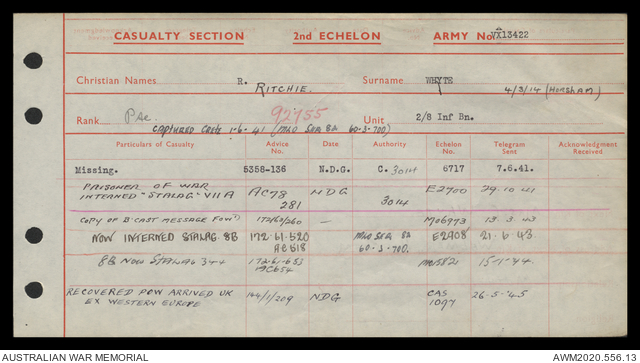 CASUALTY SECTION 2nd ECHELON ARMY No. VX13422
Christian Names R. RITCHIE. Surname WHYTE 4/3/14 (HORSHAM)
Rank Pte. 92755 Unit 2/8 Inf Bn.
CAPTURED CRETE 1.6.41 (MLO SER 82 60.3.700)
Particulars of Casualty Advice No. Date Authority Echelon No. Telegram Sent Acknowledgment Received
Missing. 5358-136 N.D.G. C. 3014 6717 7.6.41.
PRISONER OF WAR
INTERNED "STALAG" VII A AC78 281 NDG 3014 E2700 29.10.41
COPY OF B'CAST MESSAGE FOW'D 172/61/260 — M06973 13.3.43
NOW INTERNED STALAG 8B 172.61.520 AC518 MLO SER 82 60.3.700. E2908 21.6.43.
8B NOW STALAG 344 172.61.653 AC654 15.1.44.
RECOVERED POW ARRIVED UK 144/1/209 NDG CAS 1097 26.5.45
EX WESTERN EUROPE
AUSTRALIAN WAR MEMORIAL AWM2020.556.13